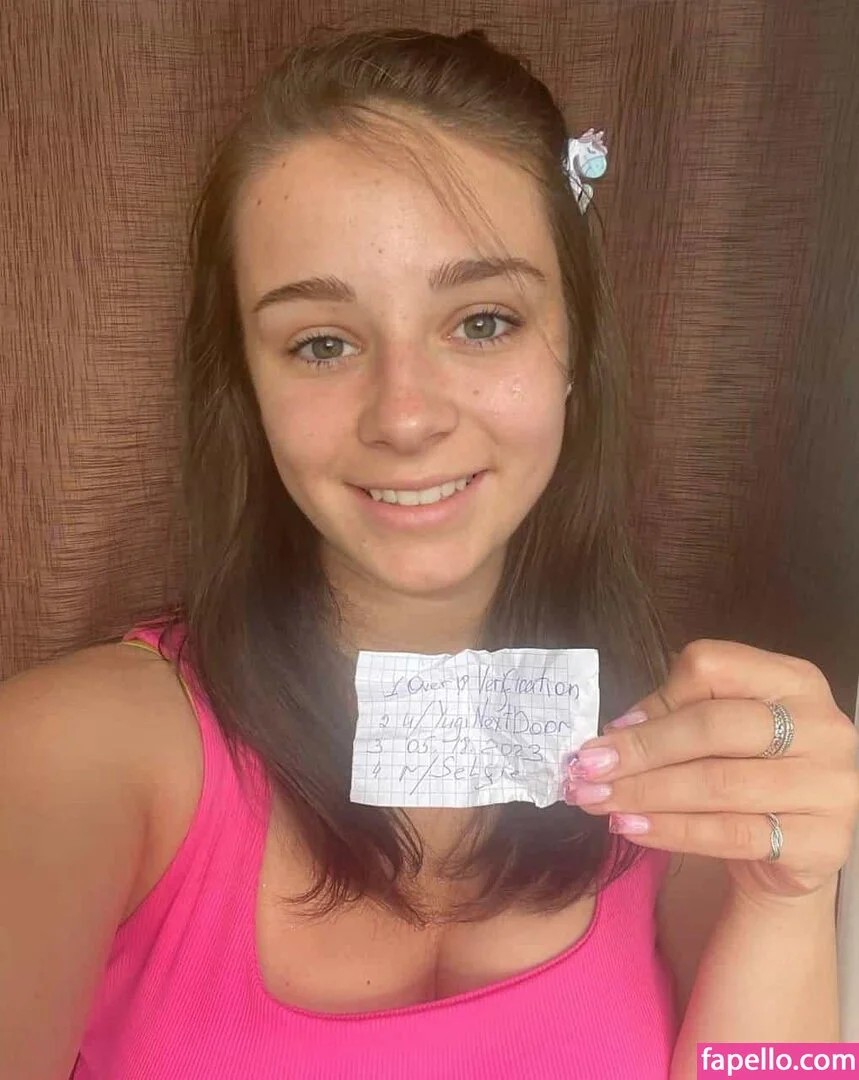 1 Over 18 Verification
2 u/YugiNextDoor
3 05.18.2023
4 r/
fapello.com